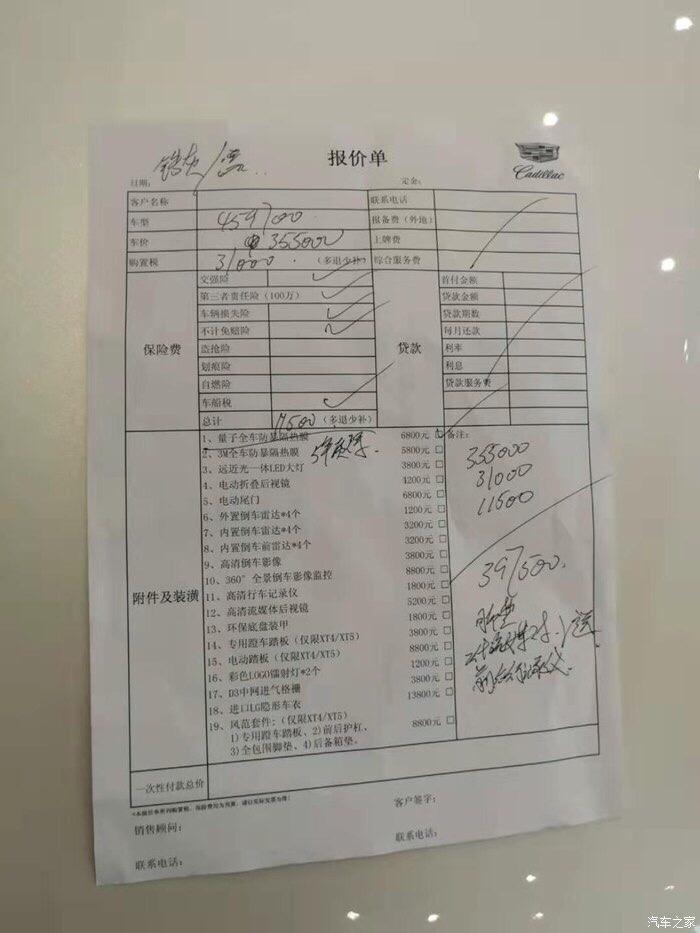 报价单
Cadillac
日期: 定金:
客户名称 联系电话
车型 459700 报备费（外地）
车价 355000 上牌费
购置税 31000 （多退少补） 综合服务费
保险费
交强险
第三者责任险（100万）
车辆损失险
不计免赔险
盗抢险
划痕险
自燃险
车船税
总计 11500（多退少补）
贷款
首付金额
贷款金额
贷款期数
每月还款
利率
利息
贷款服务费
附件及装潢
1、量子全车防暴隔热膜 6800元 □
2、3M全车防暴隔热膜 5800元 □
3、远近光一体LED大灯 3800元 □
4、电动折叠后视镜 4200元 □
5、电动尾门 6800元 □
6、外置倒车雷达*4个 1200元 □
7、内置倒车雷达*4个 3200元 □
8、内置倒车前雷达*4个 3200元 □
9、高清倒车影像 3800元 □
10、360°全景倒车影像监控 8800元 □
11、高清行车记录仪 1800元 □
12、高清流媒体后视镜 5200元 □
13、环保底盘装甲 1800元 □
14、专用蹬车踏板（仅限XT4/XT5） 3800元 □
15、电动踏板（仅限XT4/XT5） 8800元 □
16、彩色LOGO镭射灯*2个 1200元 □
17、D3中网进气格栅 3800元 □
18、进口LG隐形车衣 13800元 □
19、风范套件:（仅限XT4/XT5） 8800元 □
1)专用蹬车踏板、2)前后护杠、
3)全包围脚垫、4)后备箱垫。
备注:
355000
31000
11500
397500.
一次性付款总价
销售顾问: 客户签字:
联系电话: 联系电话:
汽车之家